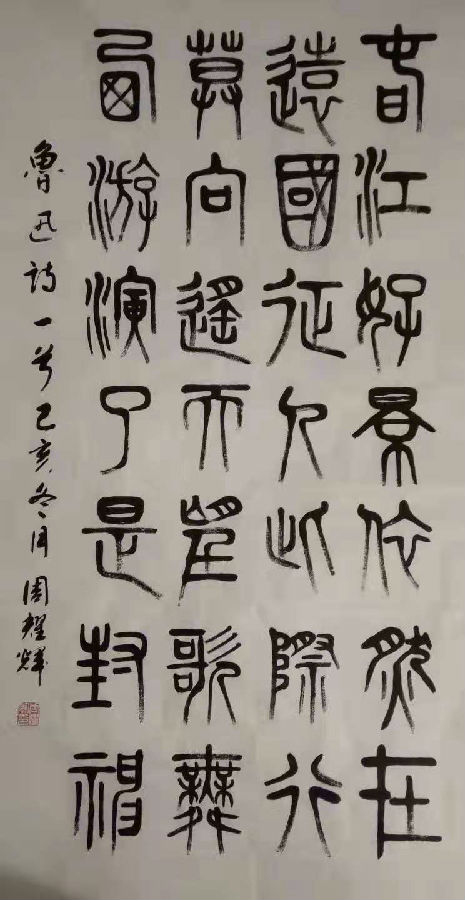 春江好景依然在
遠國征人此際行
莫向遙天望歌舞
西游演了是封神
魯迅詩一首己亥冬月周耀輝